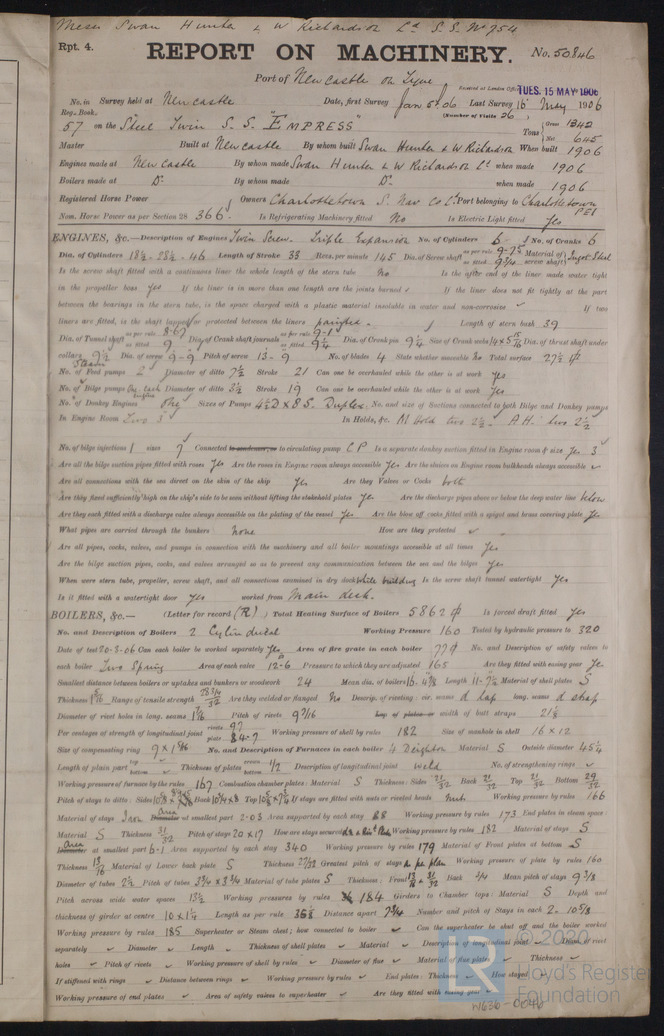 Messrs Swan Hunter & W Richardson Ld S. S. No 754
Rpt. 4.
REPORT ON MACHINERY.
No. 50846
Port of Newcastle on Tyne
Received at London Office TUES. 15 MAY 1906
No. in Survey held at Newcastle Date, first Survey Jan 5/06 Last Survey 16 May 1906
Reg. Book. (Number of Visits 26)
57 on the Steel Twin S. S. "EMPRESS" Tons Gross 1342 Net 645
Master Built at Newcastle By whom built Swan Hunter & W Richardson When built 1906
Engines made at Newcastle By whom made Swan Hunter & W Richardson Ld when made 1906
Boilers made at Do By whom made Do when made 1906
Registered Horse Power Owners Charlottetown S. Nav Co Ld Port belonging to Charlottetown PEI
Nom. Horse Power as per Section 28 366 Is Refrigerating Machinery fitted No Is Electric Light fitted Yes
ENGINES, &c.—Description of Engines Twin Screw. Triple Expansion No. of Cylinders 6 No. of Cranks 6
Dia. of Cylinders 18½ - 28½ - 46 Length of Stroke 33 Revs. per minute 145 Dia. of Screw shaft as per rule as fitted 9¾ Material of screw shaft Ingot Steel
Is the screw shaft fitted with a continuous liner the whole length of the stern tube No Is the after end of the liner made water tight
in the propeller boss yes If the liner is in more than one length are the joints burned If the liner does not fit tightly at the part
between the bearings in the stern tube, is the space charged with a plastic material insoluble in water and non-corrosive If two
liners are fitted, is the shaft lapped or protected between the liners painted. Length of stern bush 39
Dia. of Tunnel shaft as per rule 8.67 as fitted 9 Dia. of Crank shaft journals as per rule as fitted 9¼ Dia. of Crank pin 9¼ Size of Crank webs Dia. of thrust shaft under
collars 9½ Dia. of screw 9-9 Pitch of screw 13-9 No. of blades 4 State whether moveable No Total surface 27½ ф
No. of Feed pumps 2 Diameter of ditto 7½ Stroke 21 Can one be overhauled while the other is at work yes
No. of Bilge pumps One each engine Diameter of ditto 3½ Stroke 19 Can one be overhauled while the other is at work yes
No. of Donkey Engines One Sizes of Pumps 4½D x 8S. Duplex No. and size of Suctions connected to both Bilge and Donkey pumps
In Engine Room Two 3 In Holds, &c. M Hold two 2½. A H. two 2½
No. of bilge injections 1 sizes 9 Connected to condenser, or to circulating pump CP Is a separate donkey suction fitted in Engine room & size yes 3
Are all the bilge suction pipes fitted with roses yes Are the roses in Engine room always accessible yes Are the sluices on Engine room bulkheads always accessible
Are all connections with the sea direct on the skin of the ship yes Are they Valves or Cocks both
Are they fixed sufficiently high on the ship's side to be seen without lifting the stokehold plates yes Are the discharge pipes above or below the deep water line below
Are they each fitted with a discharge valve always accessible on the plating of the vessel yes Are the blow off cocks fitted with a spigot and brass covering plate yes
What pipes are carried through the bunkers None How are they protected
Are all pipes, cocks, valves, and pumps in connection with the machinery and all boiler mountings accessible at all times yes
Are the bilge suction pipes, cocks, and valves arranged so as to prevent any communication between the sea and the bilges yes
When were stern tube, propeller, screw shaft, and all connections examined in dry dock while building Is the screw shaft tunnel watertight yes
Is it fitted with a watertight door yes worked from Main deck.
BOILERS, &c.— (Letter for record (R)) Total Heating Surface of Boilers 5862 ф Is forced draft fitted yes
No. and Description of Boilers 2 Cylindrical Working Pressure 160 Tested by hydraulic pressure to 320
Date of test 20-3-06 Can each boiler be worked separately yes Area of fire grate in each boiler 77 ф No. and Description of safety valves to
each boiler Two Spring Area of each valve 12-6 Pressure to which they are adjusted 165 Are they fitted with easing gear yes
Smallest distance between boilers or uptakes and bunkers or woodwork 24 Mean dia. of boilers Length Material of shell plates S
Thickness Range of tensile strength 28¾/32 Are they welded or flanged No Descrip. of riveting: cir. seams d lap long. seams d strap
Diameter of rivet holes in long. seams Pitch of rivets 9 3/16 Lap of plates or width of butt straps 21⅞
Per centages of strength of longitudinal joint rivets plate 84.7 Working pressure of shell by rules 182 Size of manhole in shell 16 x 12
Size of compensating ring No. and Description of Furnaces in each boiler 4 Deighton Material S Outside diameter 45¼
Length of plain part top bottom Thickness of plates crown bottom ½ Description of longitudinal joint weld No. of strengthening rings
Working pressure of furnace by the rules 167 Combustion chamber plates: Material S Thickness: Sides 21/32 Back 21/32 Top 21/32 Bottom 29/32
Pitch of stays to ditto: Sides Back Top If stays are fitted with nuts or riveted heads nuts Working pressure by rules 166
Material of stays Iron Area at smallest part 2.03 Area supported by each stay 88 Working pressure by rules 173 End plates in steam space:
Material S Thickness 31/32 Pitch of stays 20 x 17 How are stays secured Working pressure by rules 182 Material of stays S
Area at smallest part 6.1 Area supported by each stay 340 Working pressure by rules 179 Material of Front plates at bottom S
Thickness 13/16 Material of Lower back plate S Thickness 27/32 Greatest pitch of stays Working pressure of plate by rules 160
Diameter of tubes 2½ Pitch of tubes 3¾ x 3¾ Material of tube plates S Thickness: Front Back ¾ Mean pitch of stays 9⅜
Pitch across wide water spaces 13½ Working pressures by rules 184 Girders to Chamber tops: Material S Depth and
thickness of girder at centre 10 x 1¼ Length as per rule Distance apart 7¾ Number and pitch of Stays in each 2. 10⅝
Working pressure by rules 185 Superheater or Steam chest; how connected to boiler Can the superheater be shut off and the boiler worked
separately Diameter Length Thickness of shell plates Material Description of longitudinal joint Diam. of rivet
holes Pitch of rivets Working pressure of shell by rules Diameter of flue Material of flue plates Thickness
If stiffened with rings Distance between rings Working pressure by rules End plates: Thickness How stayed
Working pressure of end plates Area of safety valves to superheater Are they fitted with easing gear
© 2020
LR
Lloyd's Register
Foundation
W636-0046